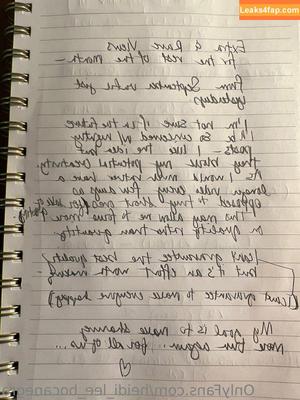 Leaks4fap.com
Extra & Rare Views
for the rest of the Month –
From September
yesterday
I'm not sure if in the future
I'll be concerned w/ nightly
posts - I like the idea but
they block my potential creativity.
As I would much rather have a
longer video every few days as
opposed to tiny short ones for sake of
posting.
This may allow me to focus more
on quality rather than quantity.
I can't guarantee the best quality
but it's an effort worth making
(I can't guarantee to make everyone happy)
My goal is to make sharing
more fun again... for all of us...
OnlyFans.com/heidi_lee_bocanegra